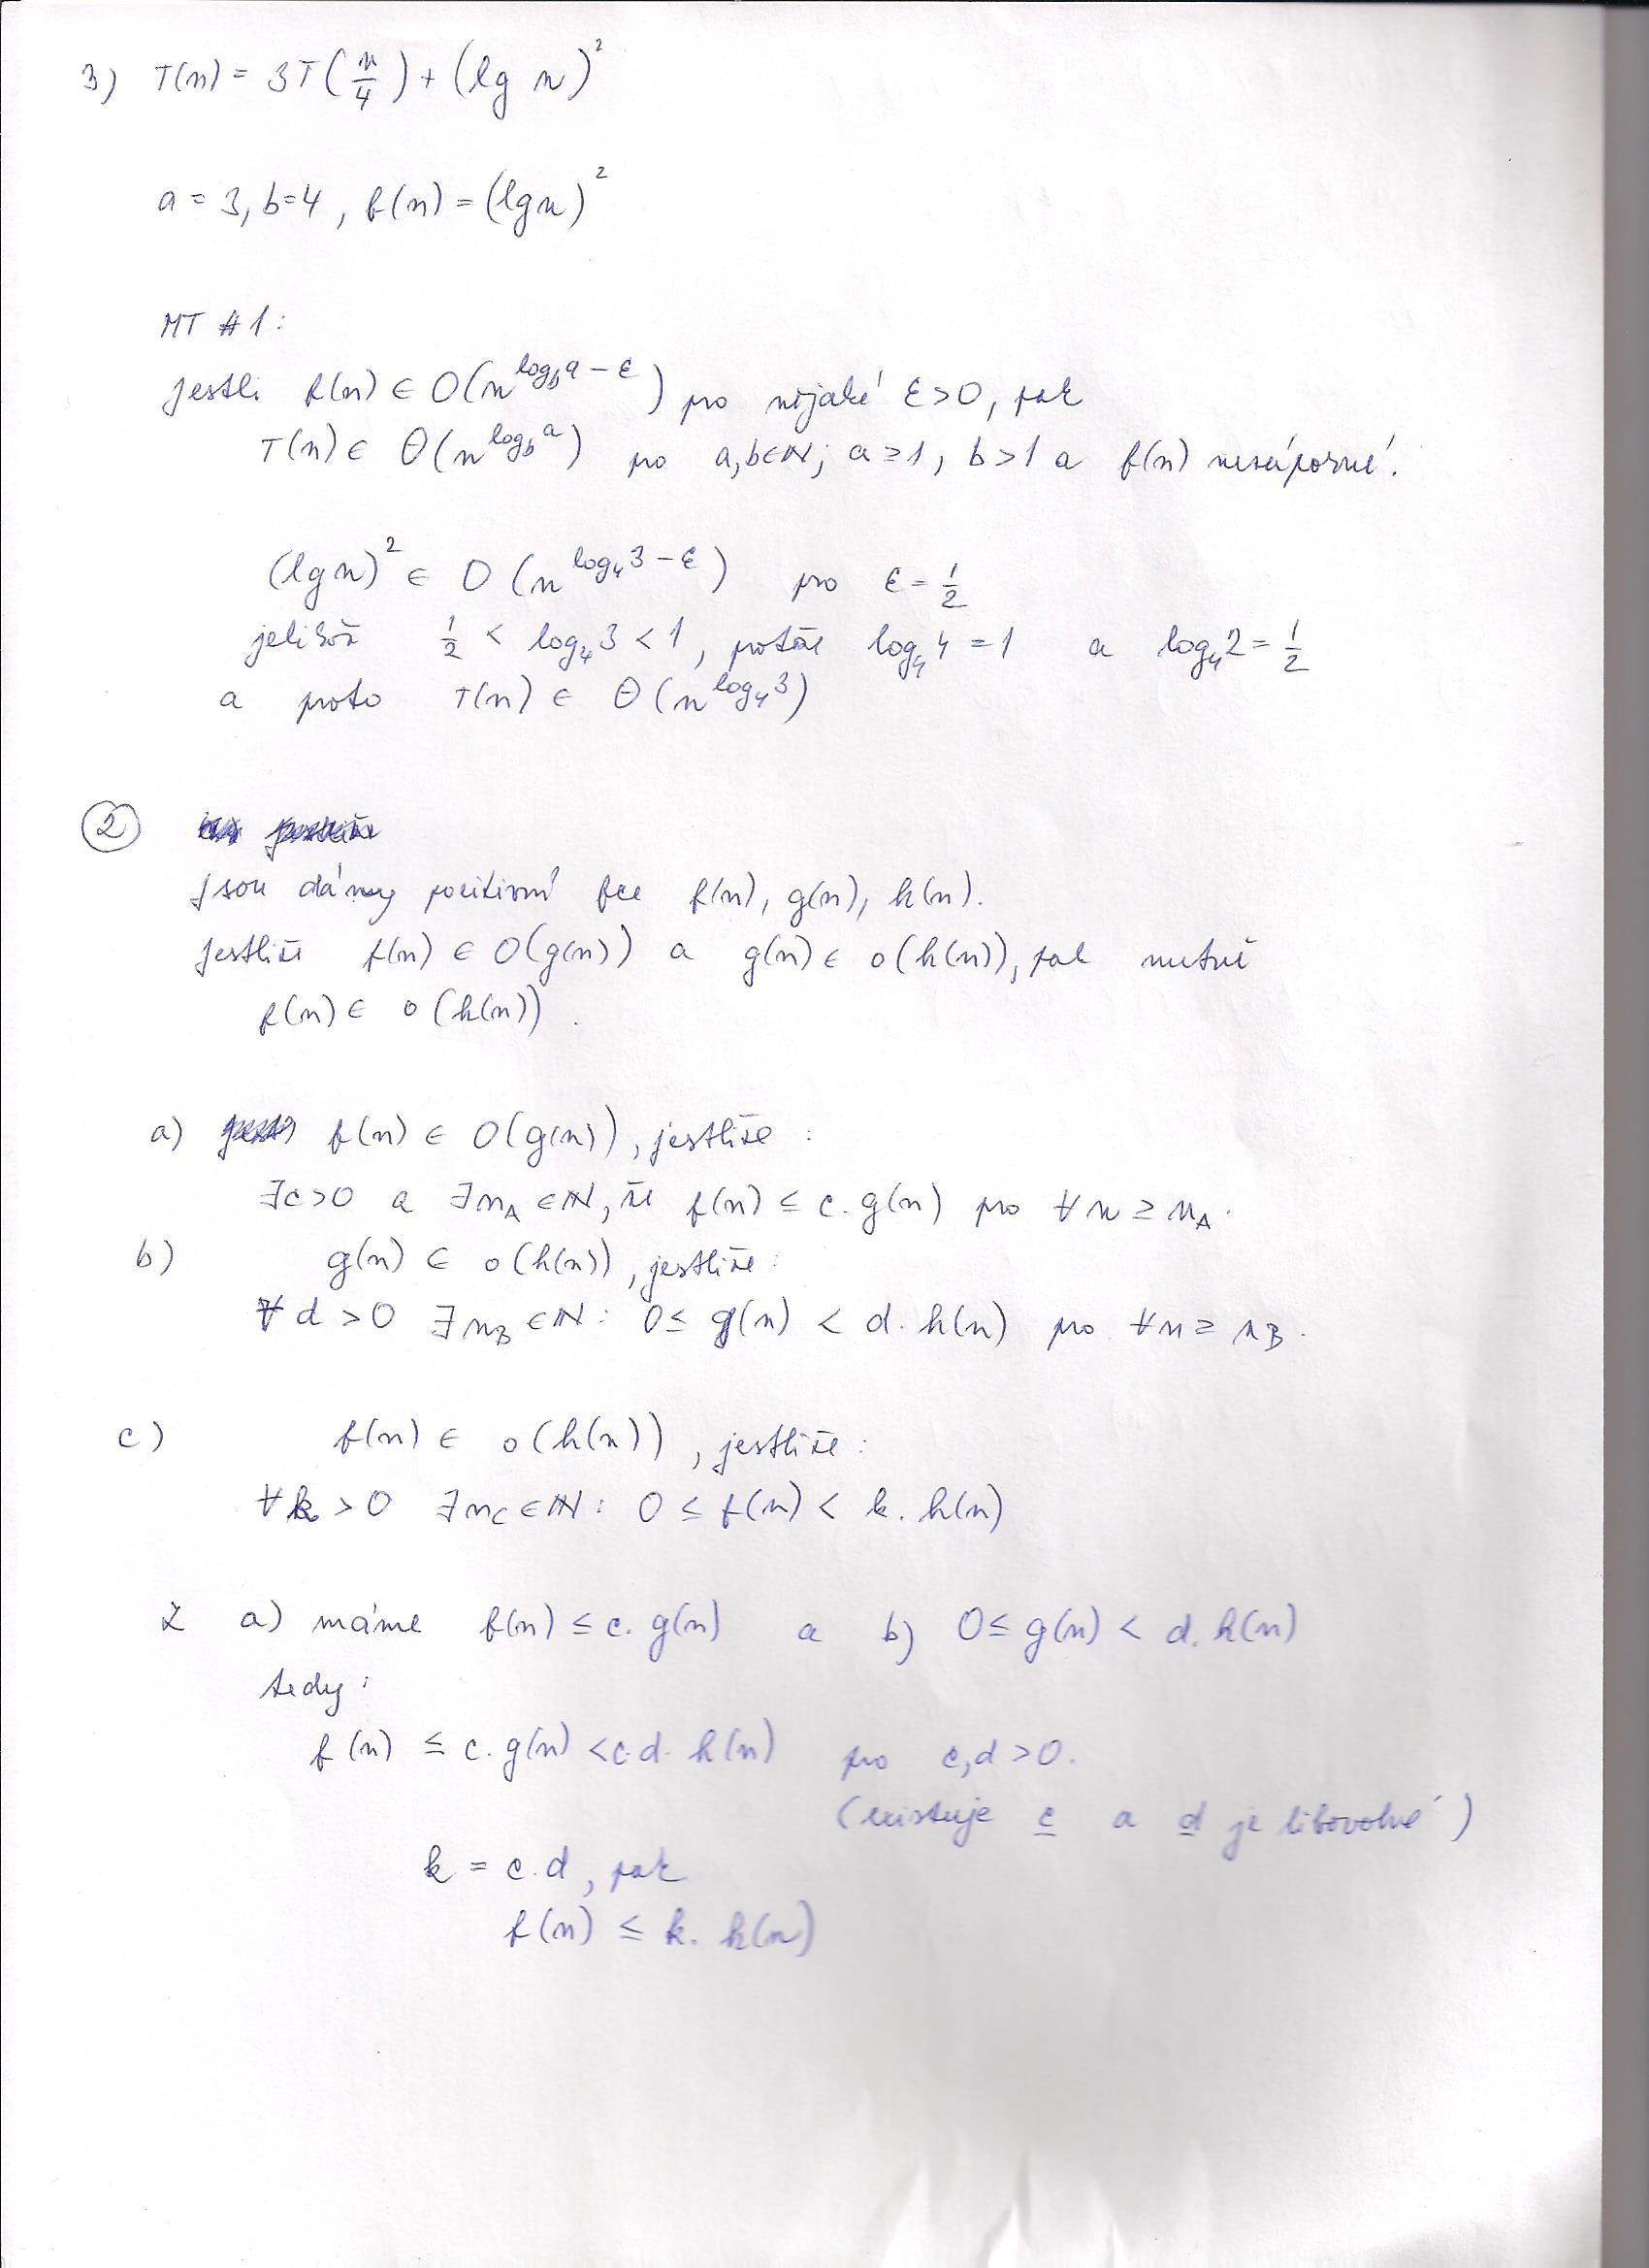 3) T(n) = 3T(n/4) + (lg n)²
a = 3, b=4, f(n) = (lg n)²
MT #1:
Jestli f(n) ∈ O(n^(log_b a − ε)) pro nějaké ε>0, pak
T(n) ∈ Θ(n^(log_b a)) pro a,b∈N; a ≥ 1, b > 1 a f(n) nezáporné.
(lg n)² ∈ O(n^(log₄3 − ε)) pro ε = 1/2
jelikož 1/2 < log₄3 < 1, protože log₄4 = 1 a log₄2 = 1/2
a proto T(n) ∈ Θ(n^(log₄3))
2
Jsou dány pozitivní fce f(n), g(n), h(n).
Jestliže f(n) ∈ O(g(n)) a g(n) ∈ o(h(n)), pak nutně
f(n) ∈ o(h(n)).
a) f(n) ∈ O(g(n)), jestliže:
∃c>0 a ∃n_A ∈ N, že f(n) ≤ c.g(n) pro ∀n ≥ n_A.
b) g(n) ∈ o(h(n)), jestliže:
∀d > 0 ∃n_B ∈ N: 0 ≤ g(n) < d.h(n) pro ∀n ≥ n_B.
c) f(n) ∈ o(h(n)), jestliže:
∀k > 0 ∃n_C ∈ N: 0 ≤ f(n) < k.h(n)
Z a) máme f(n) ≤ c.g(n) a b) 0 ≤ g(n) < d.h(n)
tedy:
f(n) ≤ c.g(n) < c.d.h(n) pro c,d > 0.
(existuje c a d je libovolné)
k = c.d, pak
f(n) ≤ k.h(n)